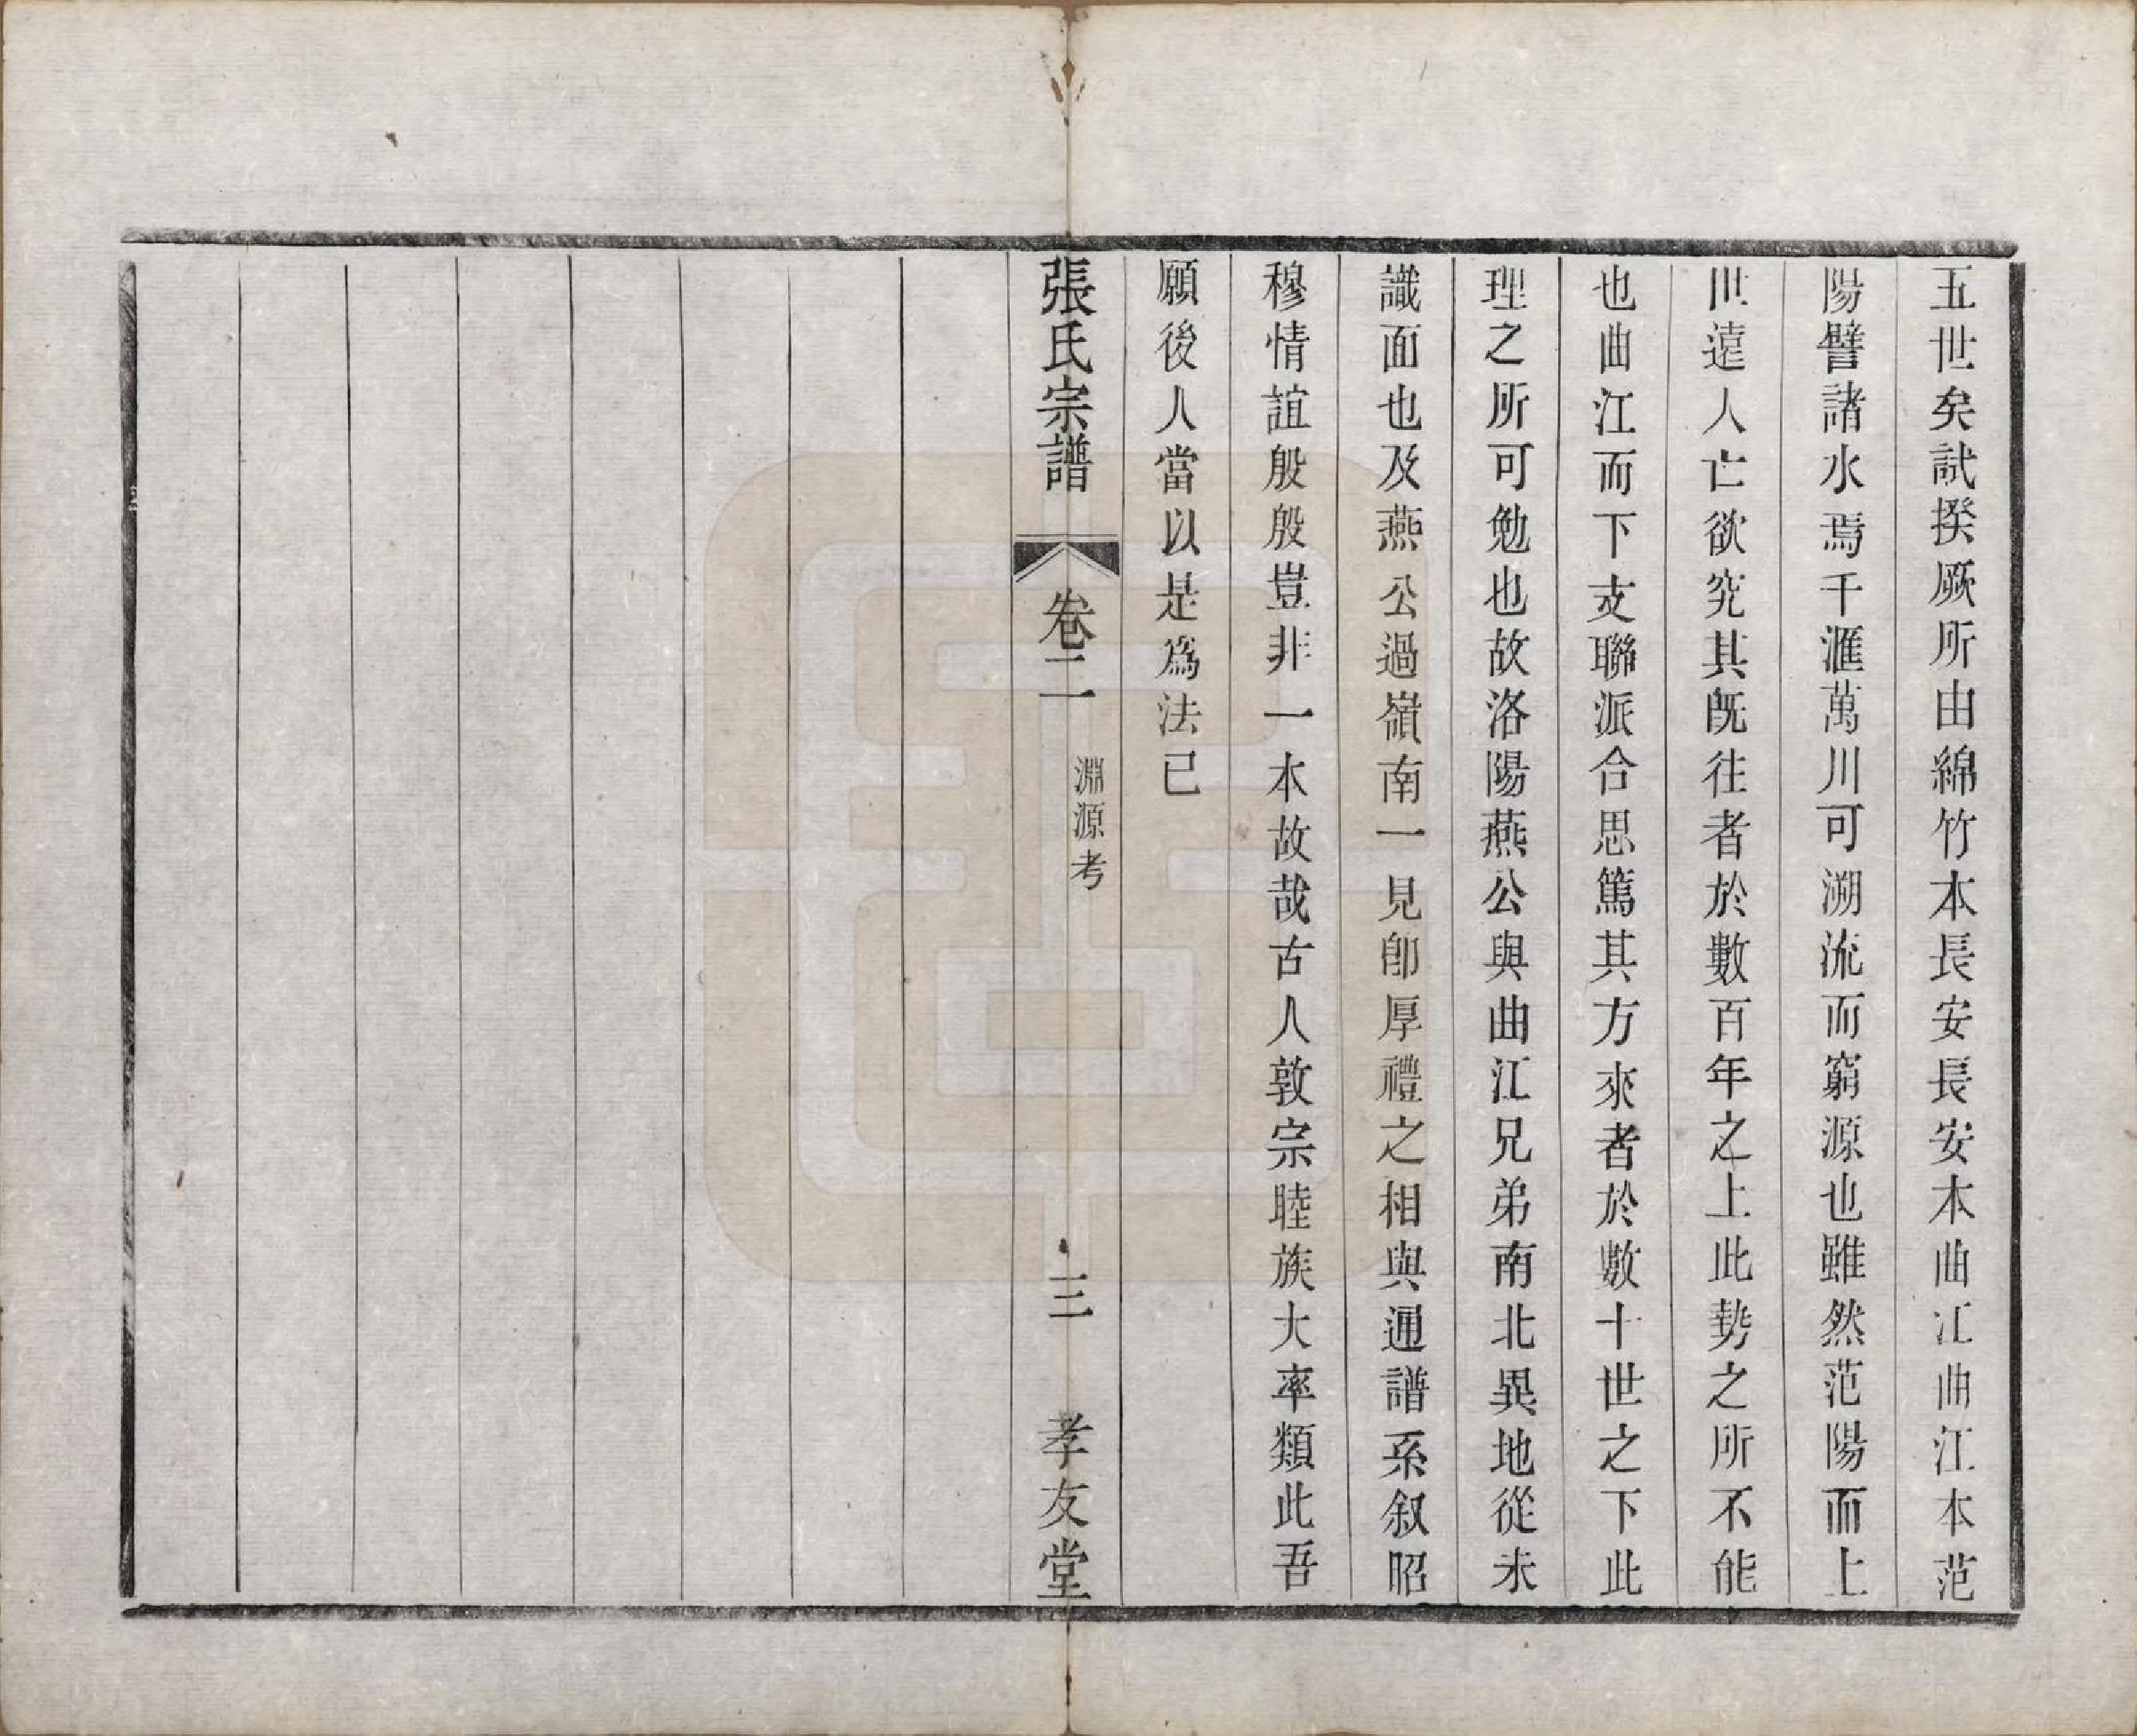 五世矣試揆厥所由綿竹本長安長安本曲江曲江本范
陽譬諸水焉千滙萬川可溯流而窮源也雖然范陽而上
世遠人亡欲究其既往者於數百年之上此勢之所不能
也曲江而下支聯派合思篤其方來者於數十世之下此
理之所可勉也故洛陽燕公與曲江兄弟南北異地從未
識面也及燕公過嶺南一見卽厚禮之相與通譜系叙昭
穆情誼殷殷豈非一本故哉古人敦宗睦族大率類此吾
願後人當以是為法已
張氏宗譜
卷二
淵源考
三
孝友堂